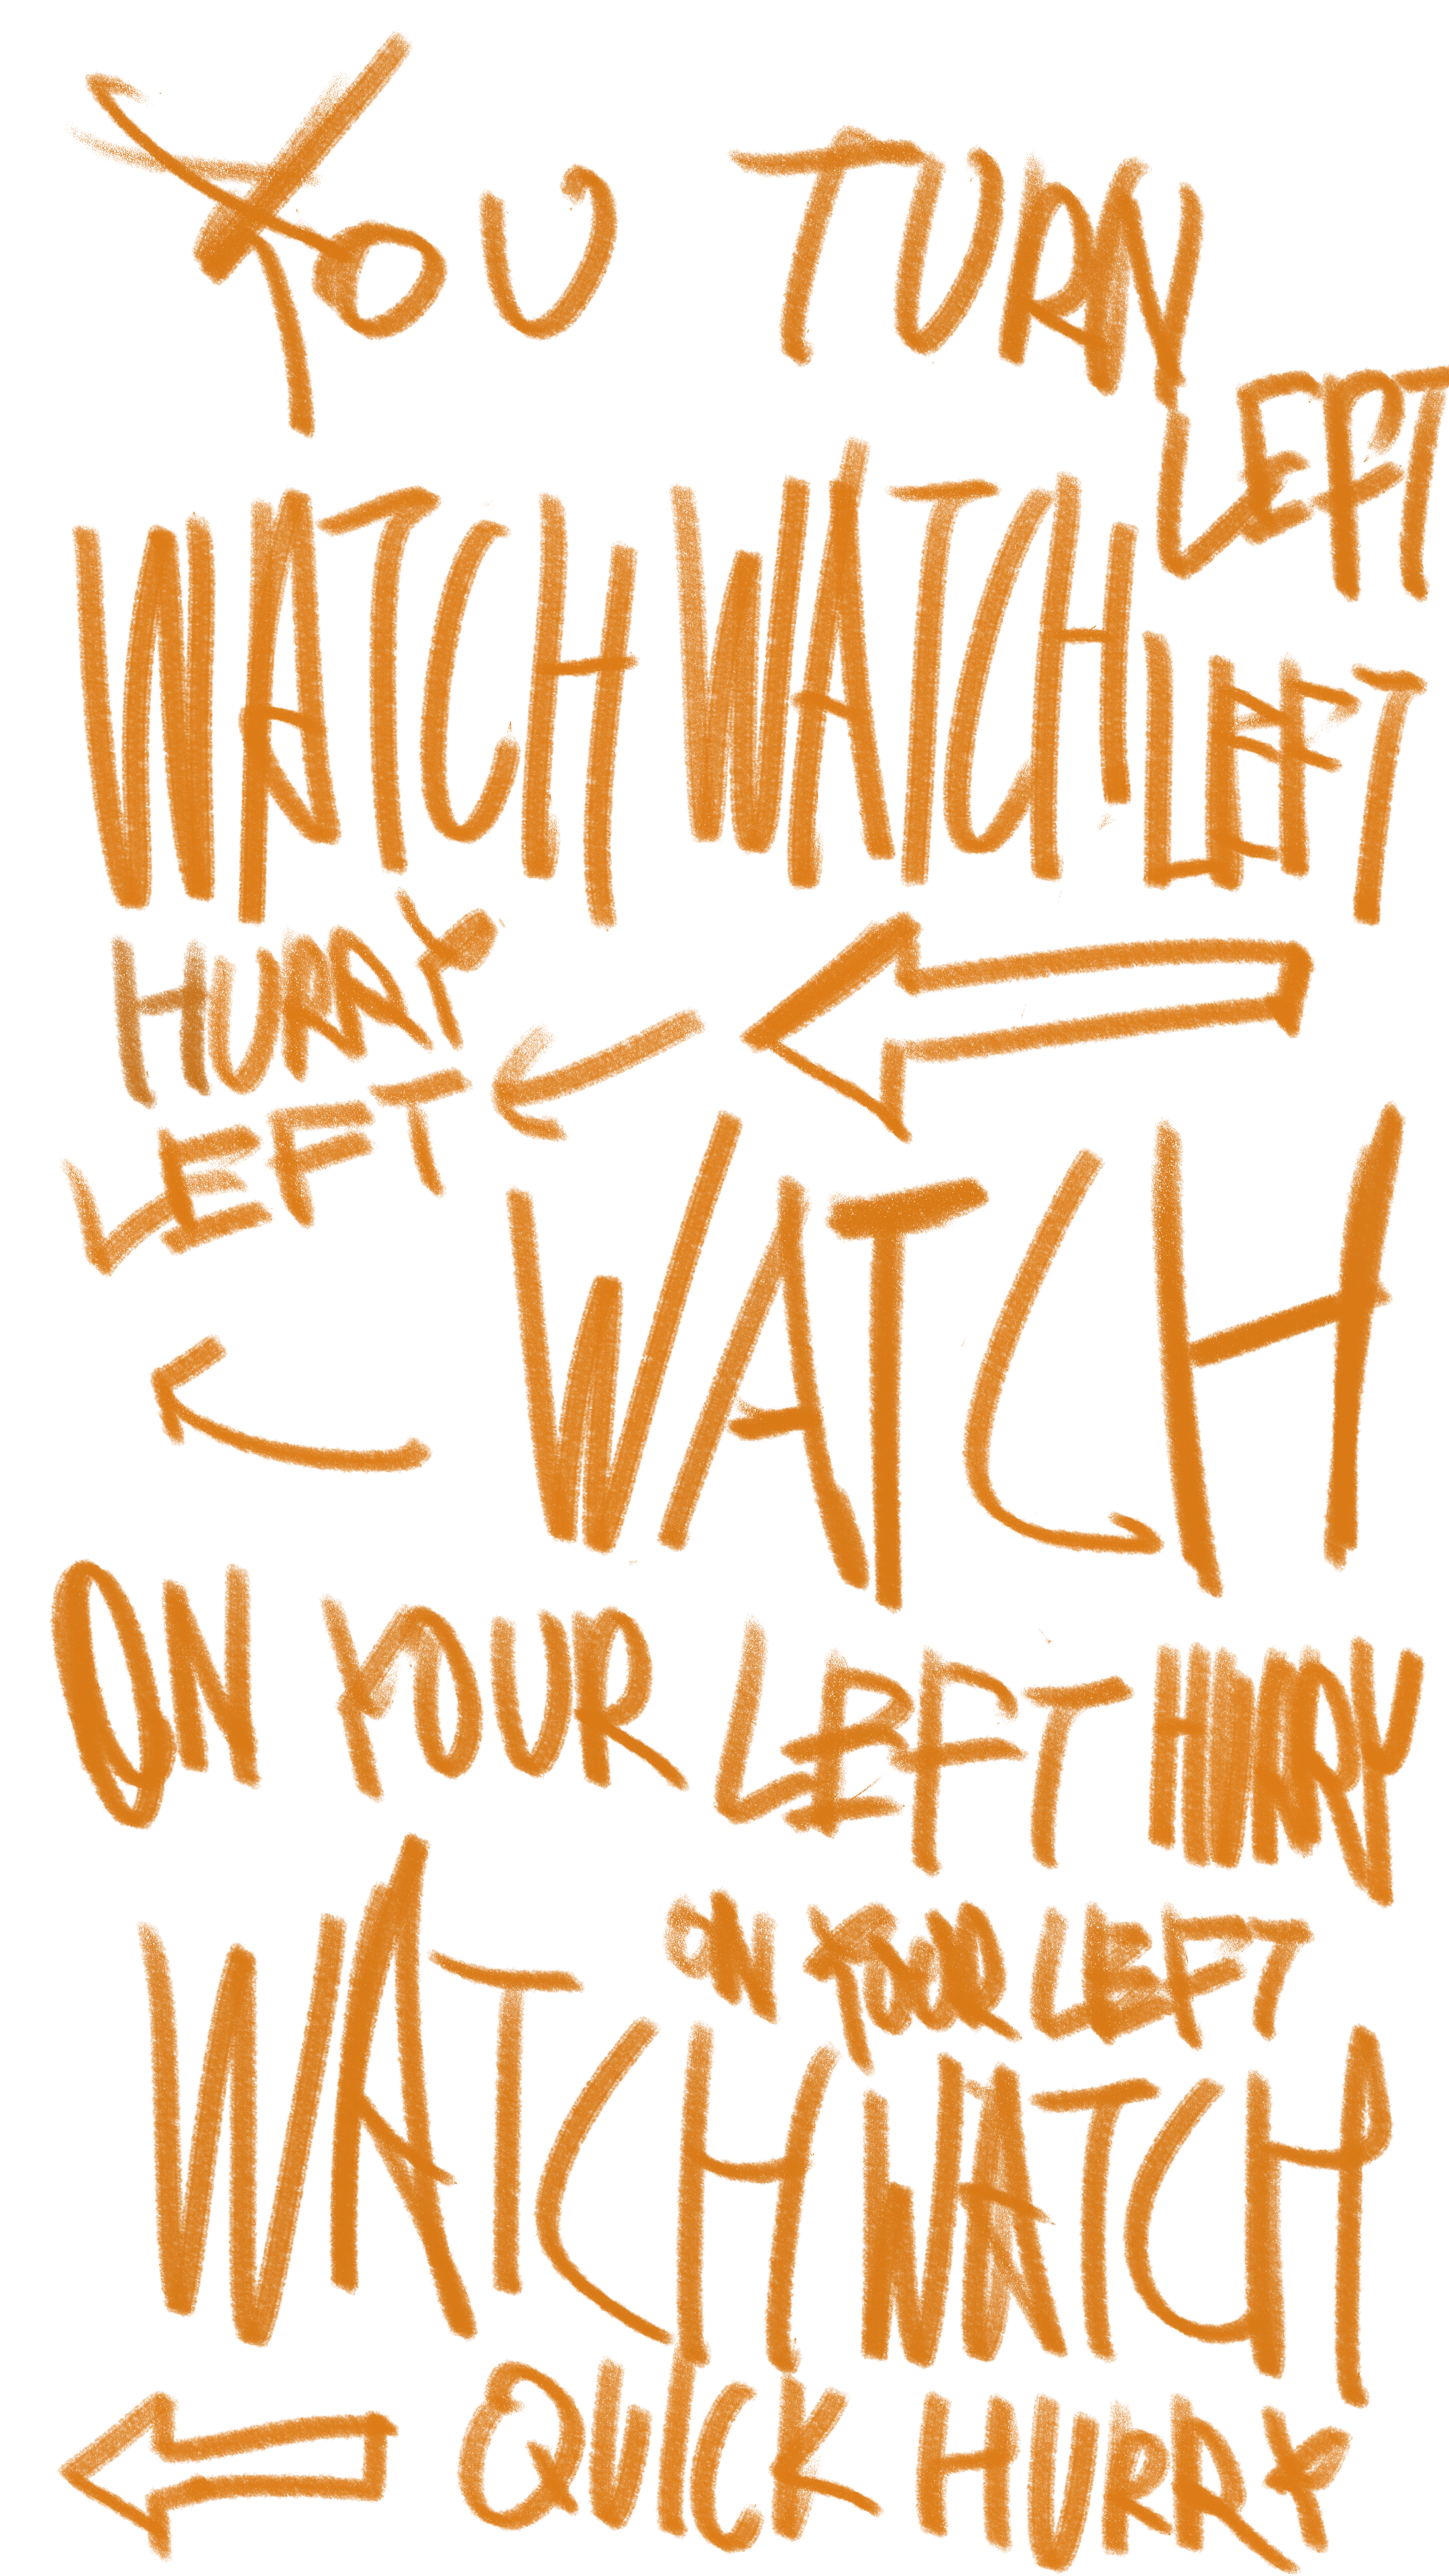 YOU TURN
LEFT
WATCH WATCH LEFT
HURRY
LEFT
WATCH
ON YOUR LEFT HURRY
ON YOUR LEFT
WATCH WATCH
QUICK HURRY